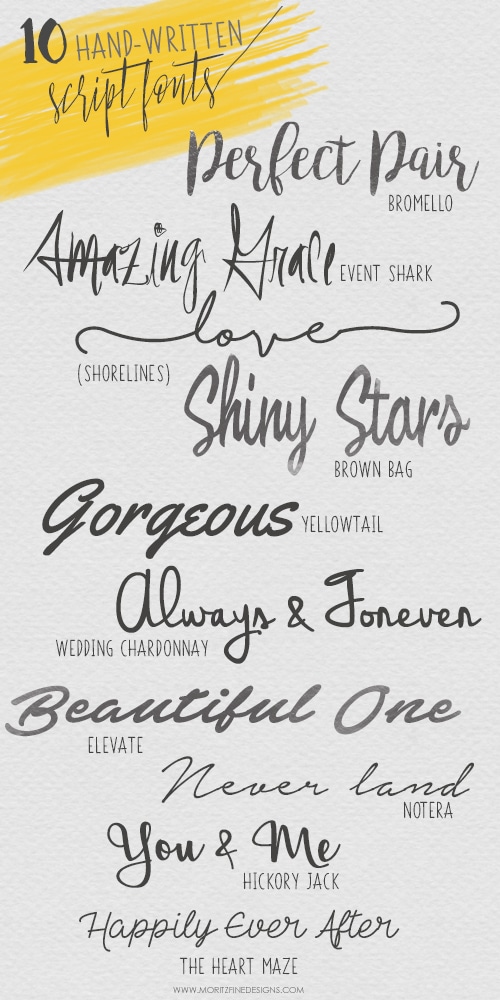 10 HAND-WRITTEN
script fonts
Perfect Pair
BROMELLO
Amazing Grace EVENT SHARK
love
(SHORELINES)
Shiny Stars
BROWN BAG
Gorgeous YELLOWTAIL
Always & Forever
WEDDING CHARDONNAY
Beautiful One
ELEVATE
Never land
NOTERA
You & Me
HICKORY JACK
Happily Ever After
THE HEART MAZE
WWW.MORITZFINEDESIGNS.COM